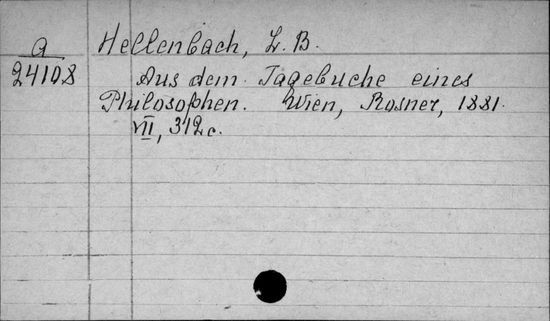 a
24108
Hellenbach, L. B.
Aus dem Tagebuche eines
Philosophen. Wien, Rosner, 1881.
VII, 312 c.